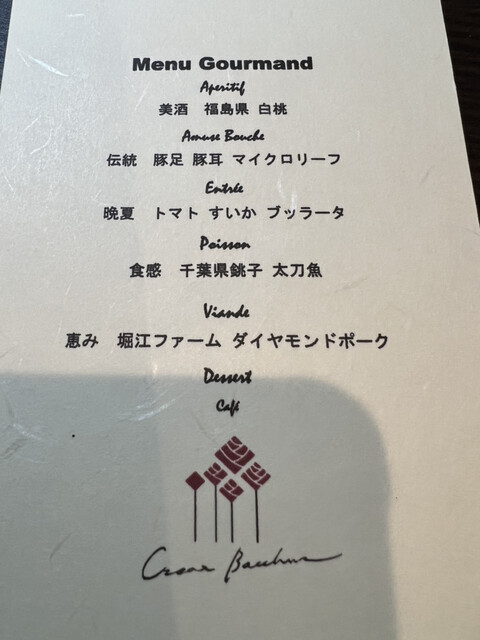 Menu Gourmand
Aperitif
美酒　福島県 白桃
Amuse Bouche
伝統　豚足 豚耳 マイクロリーフ
Entrée
晩夏　トマト すいか ブッラータ
Poisson
食感　千葉県銚子 太刀魚
Viande
恵み　堀江ファーム ダイヤモンドポーク
Dessert
Café
Cesar Bacchus